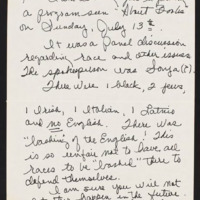 a program seen
on Sunday, July 13th.
It was a panel discussion
regarding race and other issues
The spokesperson was
There were 1 black, 2 jews,
1 Irish, 1 Italian, 1 Latino
and no English. There was
"bashing of the English"! This
is so unfair not to have all
races to be "bashed" there to
defend themselves.
I am sure you will not
let this happen in the future.